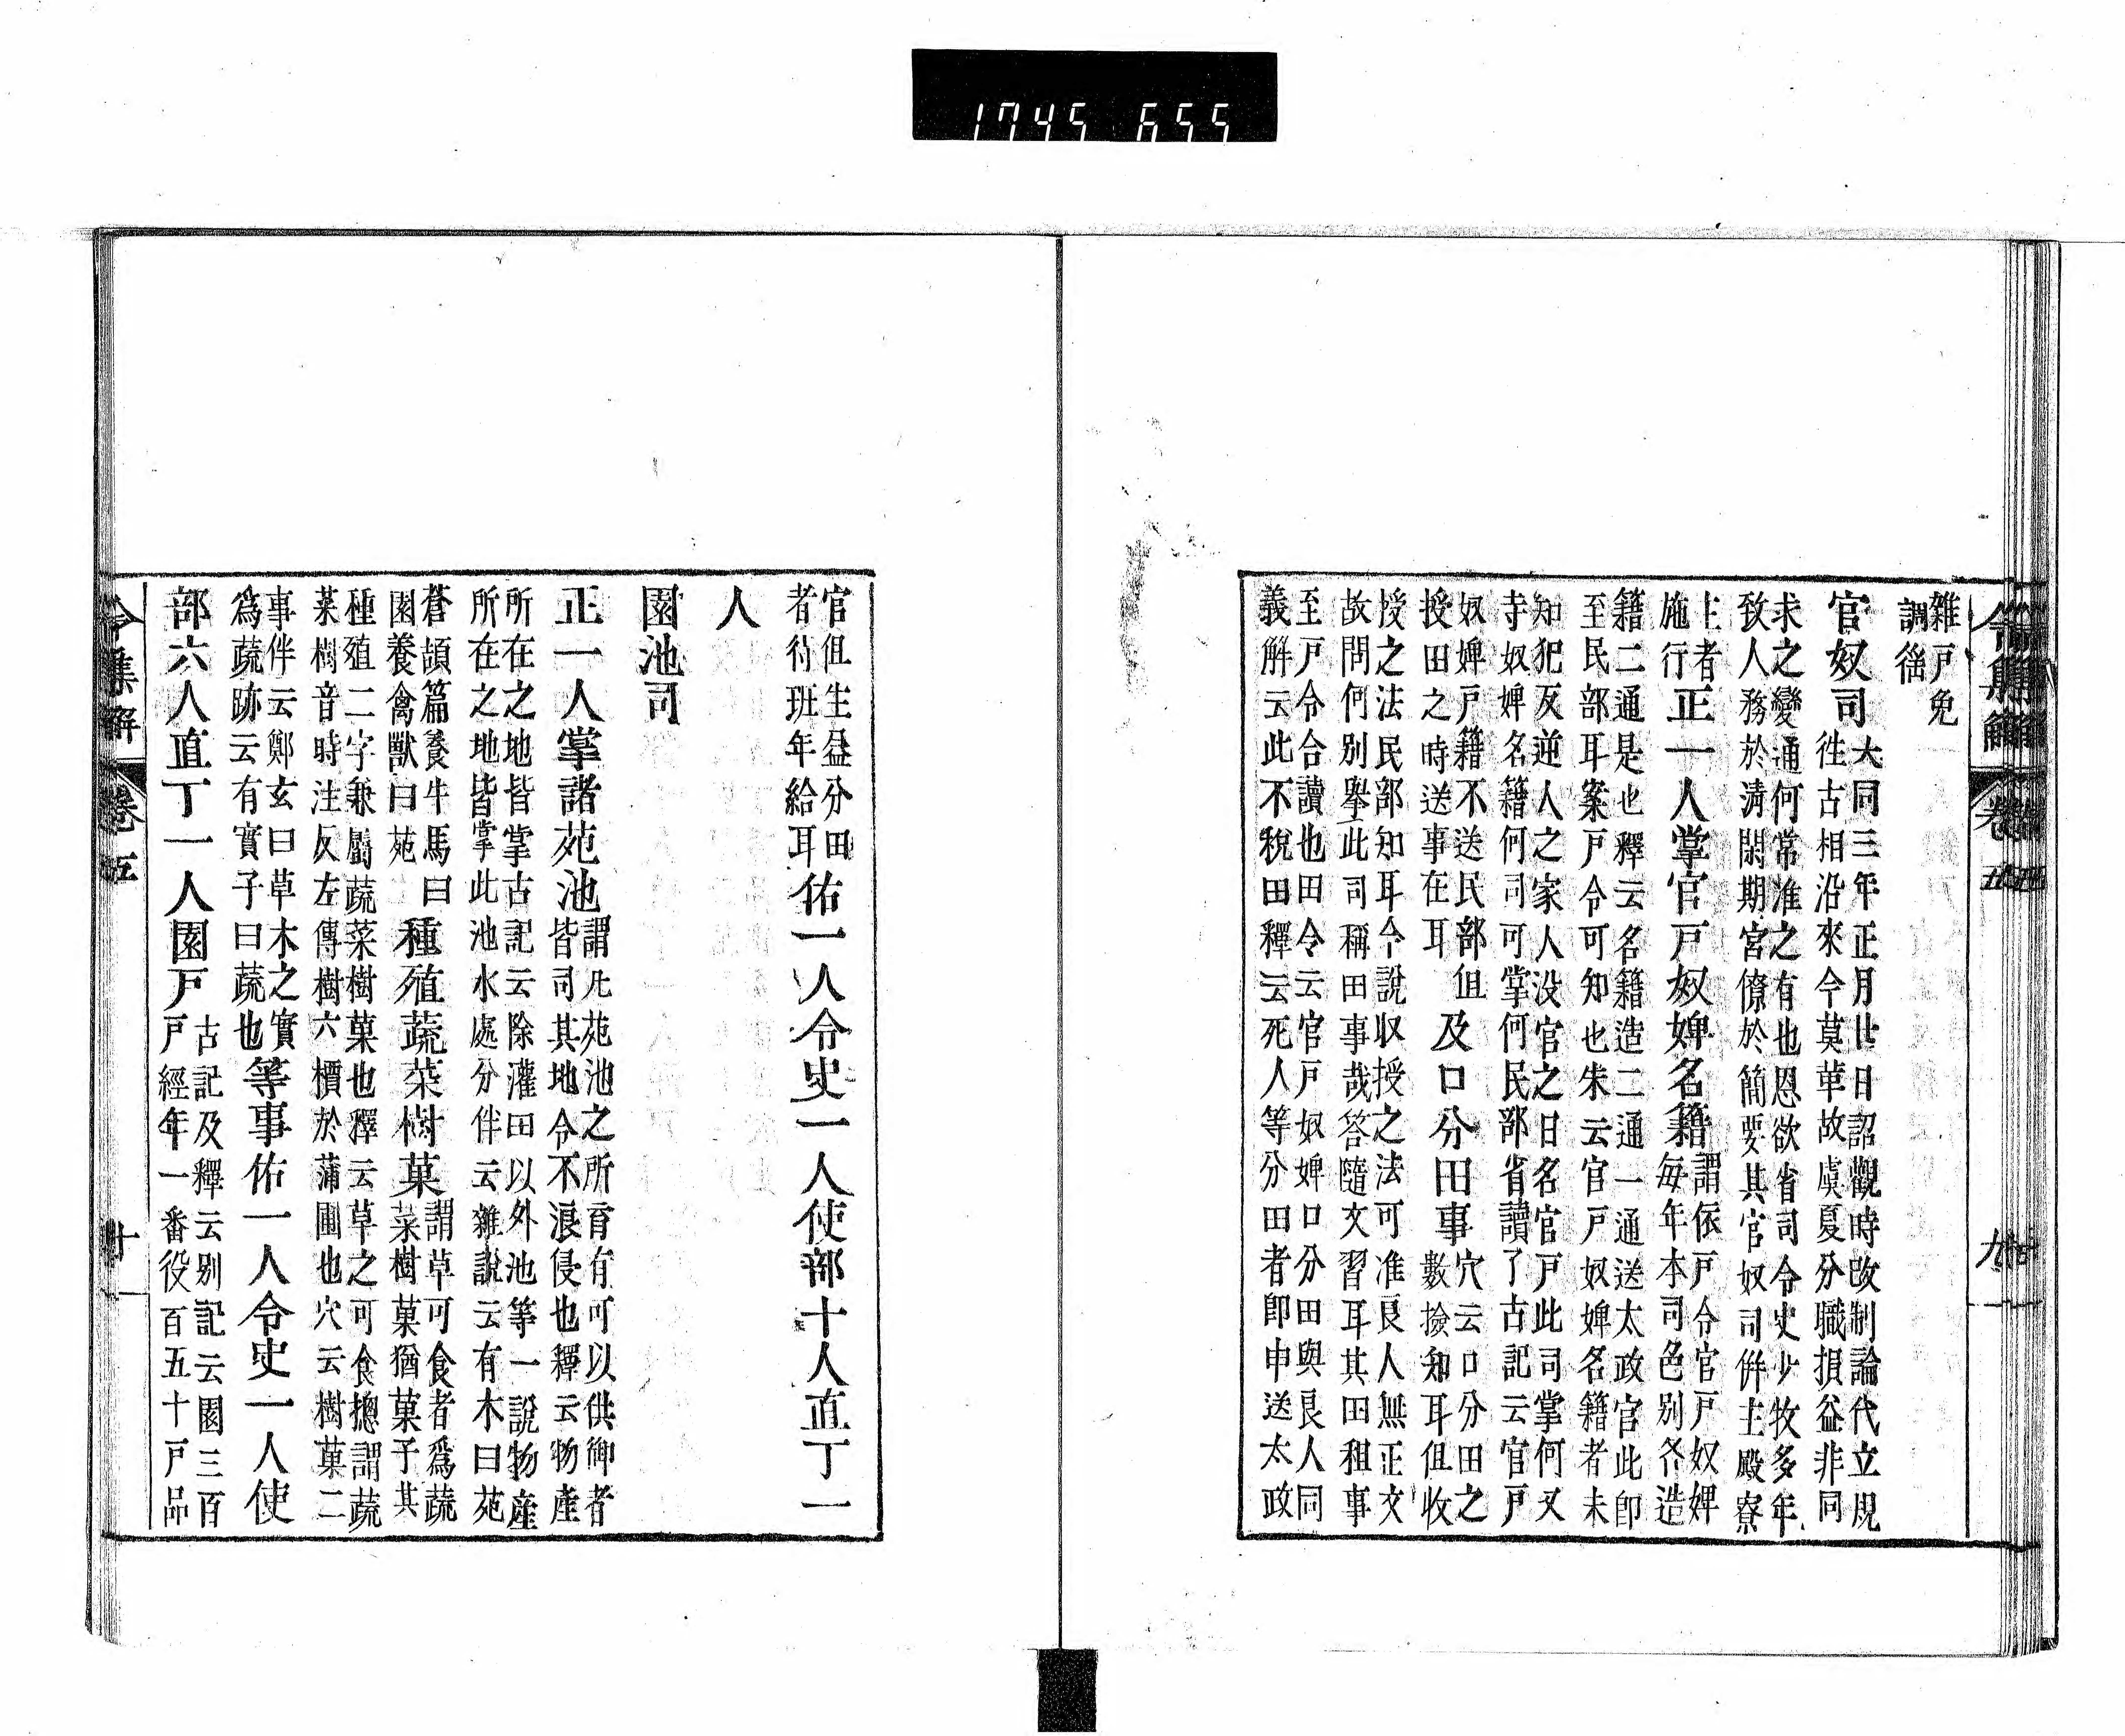 1745 655
雜戸免
調徭
官奴司
大同三年正月廿日詔觀時改制論代立規
徃古相沿來今莫革故虞夏分職損益非同
求之變通何常准之有也恩欲省司令史少牧多年
致人務於淸閑期宮僚於簡要其官奴司併主殿寮
主者
施行
正一人掌官戸奴婢名籍
謂依戸令官戸奴婢
毎年本司色別各造
籍二通是也釋云名籍造二通一通送太政官此卽
至民部耳案戸令可知也朱云官戸奴婢名籍者未
知犯反逆人之家人没官之日名官戸此司掌何又
寺奴婢名籍何司可掌何民部省讀了古記云官戸
奴婢戸籍不送民部但
授田之時送事在耳
及口分田事
穴云口分田之
數撿知耳但收
授之法民部知耳今說収授之法可准良人無正文
故問何別擧此司稱田事哉答隨文習耳其田租事
至戸令合讀也田令云官戸奴婢口分田與良人同
義解云此不稅田釋云死人等分田者卽申送太政
官但生益分田
者待班年給耳
佑一人令史一人使部十人直丁一
人
園池司
正一人掌諸苑池
謂凡苑池之所育有可以供御者
皆司其地令不浪侵也釋云物產
所在之地皆掌古記云除灌田以外池等一說物產
所在之地皆掌此池水處分伴云雜說云有木曰苑
蒼頡篇養牛馬曰
園養禽獸曰苑
種殖蔬菜樹菓
謂草可食者爲蔬
菜樹菓猶菓子其
種殖二字兼屬蔬菜樹菓也釋云草之可食摠謂蔬
菜樹音時注反左傳樹六檟於蒲圃也穴云樹菓二
事伴云鄭玄曰草木之實
爲蔬跡云有實子曰蔬也
等事佑一人令史一人使
部六人直丁一人園戸
古記及釋云別記云園三百
戸經年一番役百五十戸品
令集解 卷五 十